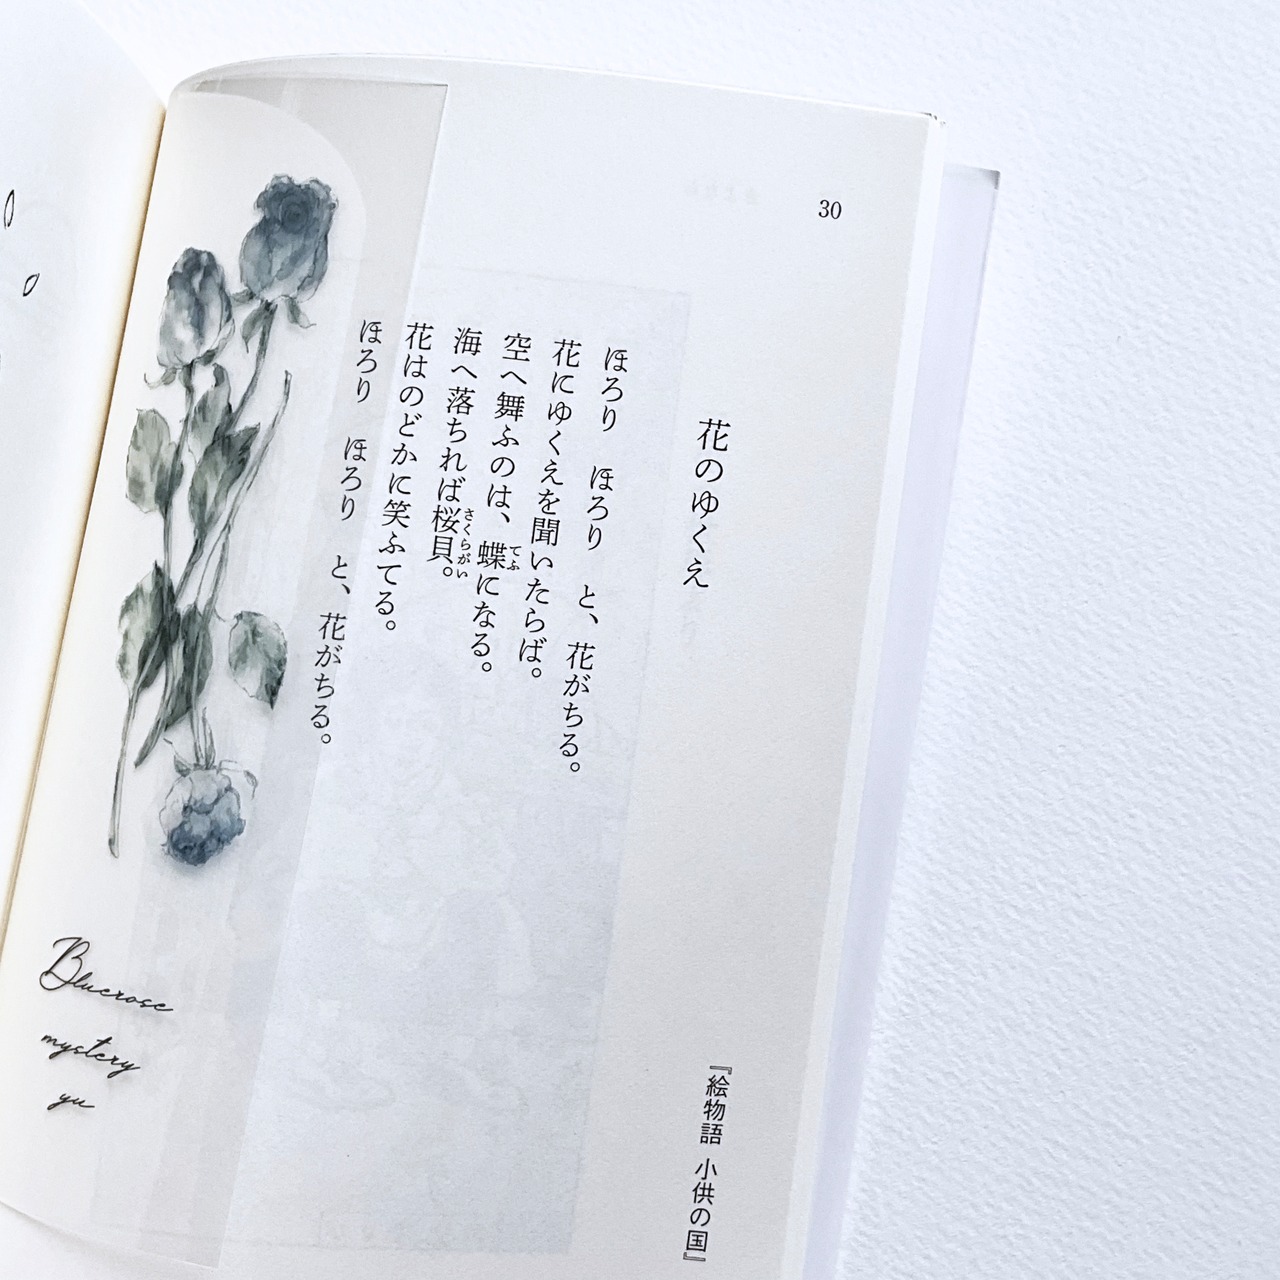 30
花のゆくえ
『絵物語 小供の国』
ほろり ほろり と、花がちる。
花にゆくえを聞いたらば。
空へ舞ふのは、蝶になる。
てふ
海へ落ちれば桜貝。
さくらがい
花はのどかに笑ふてる。
ほろり ほろり と、花がちる。
Bluerose
mystery
yu